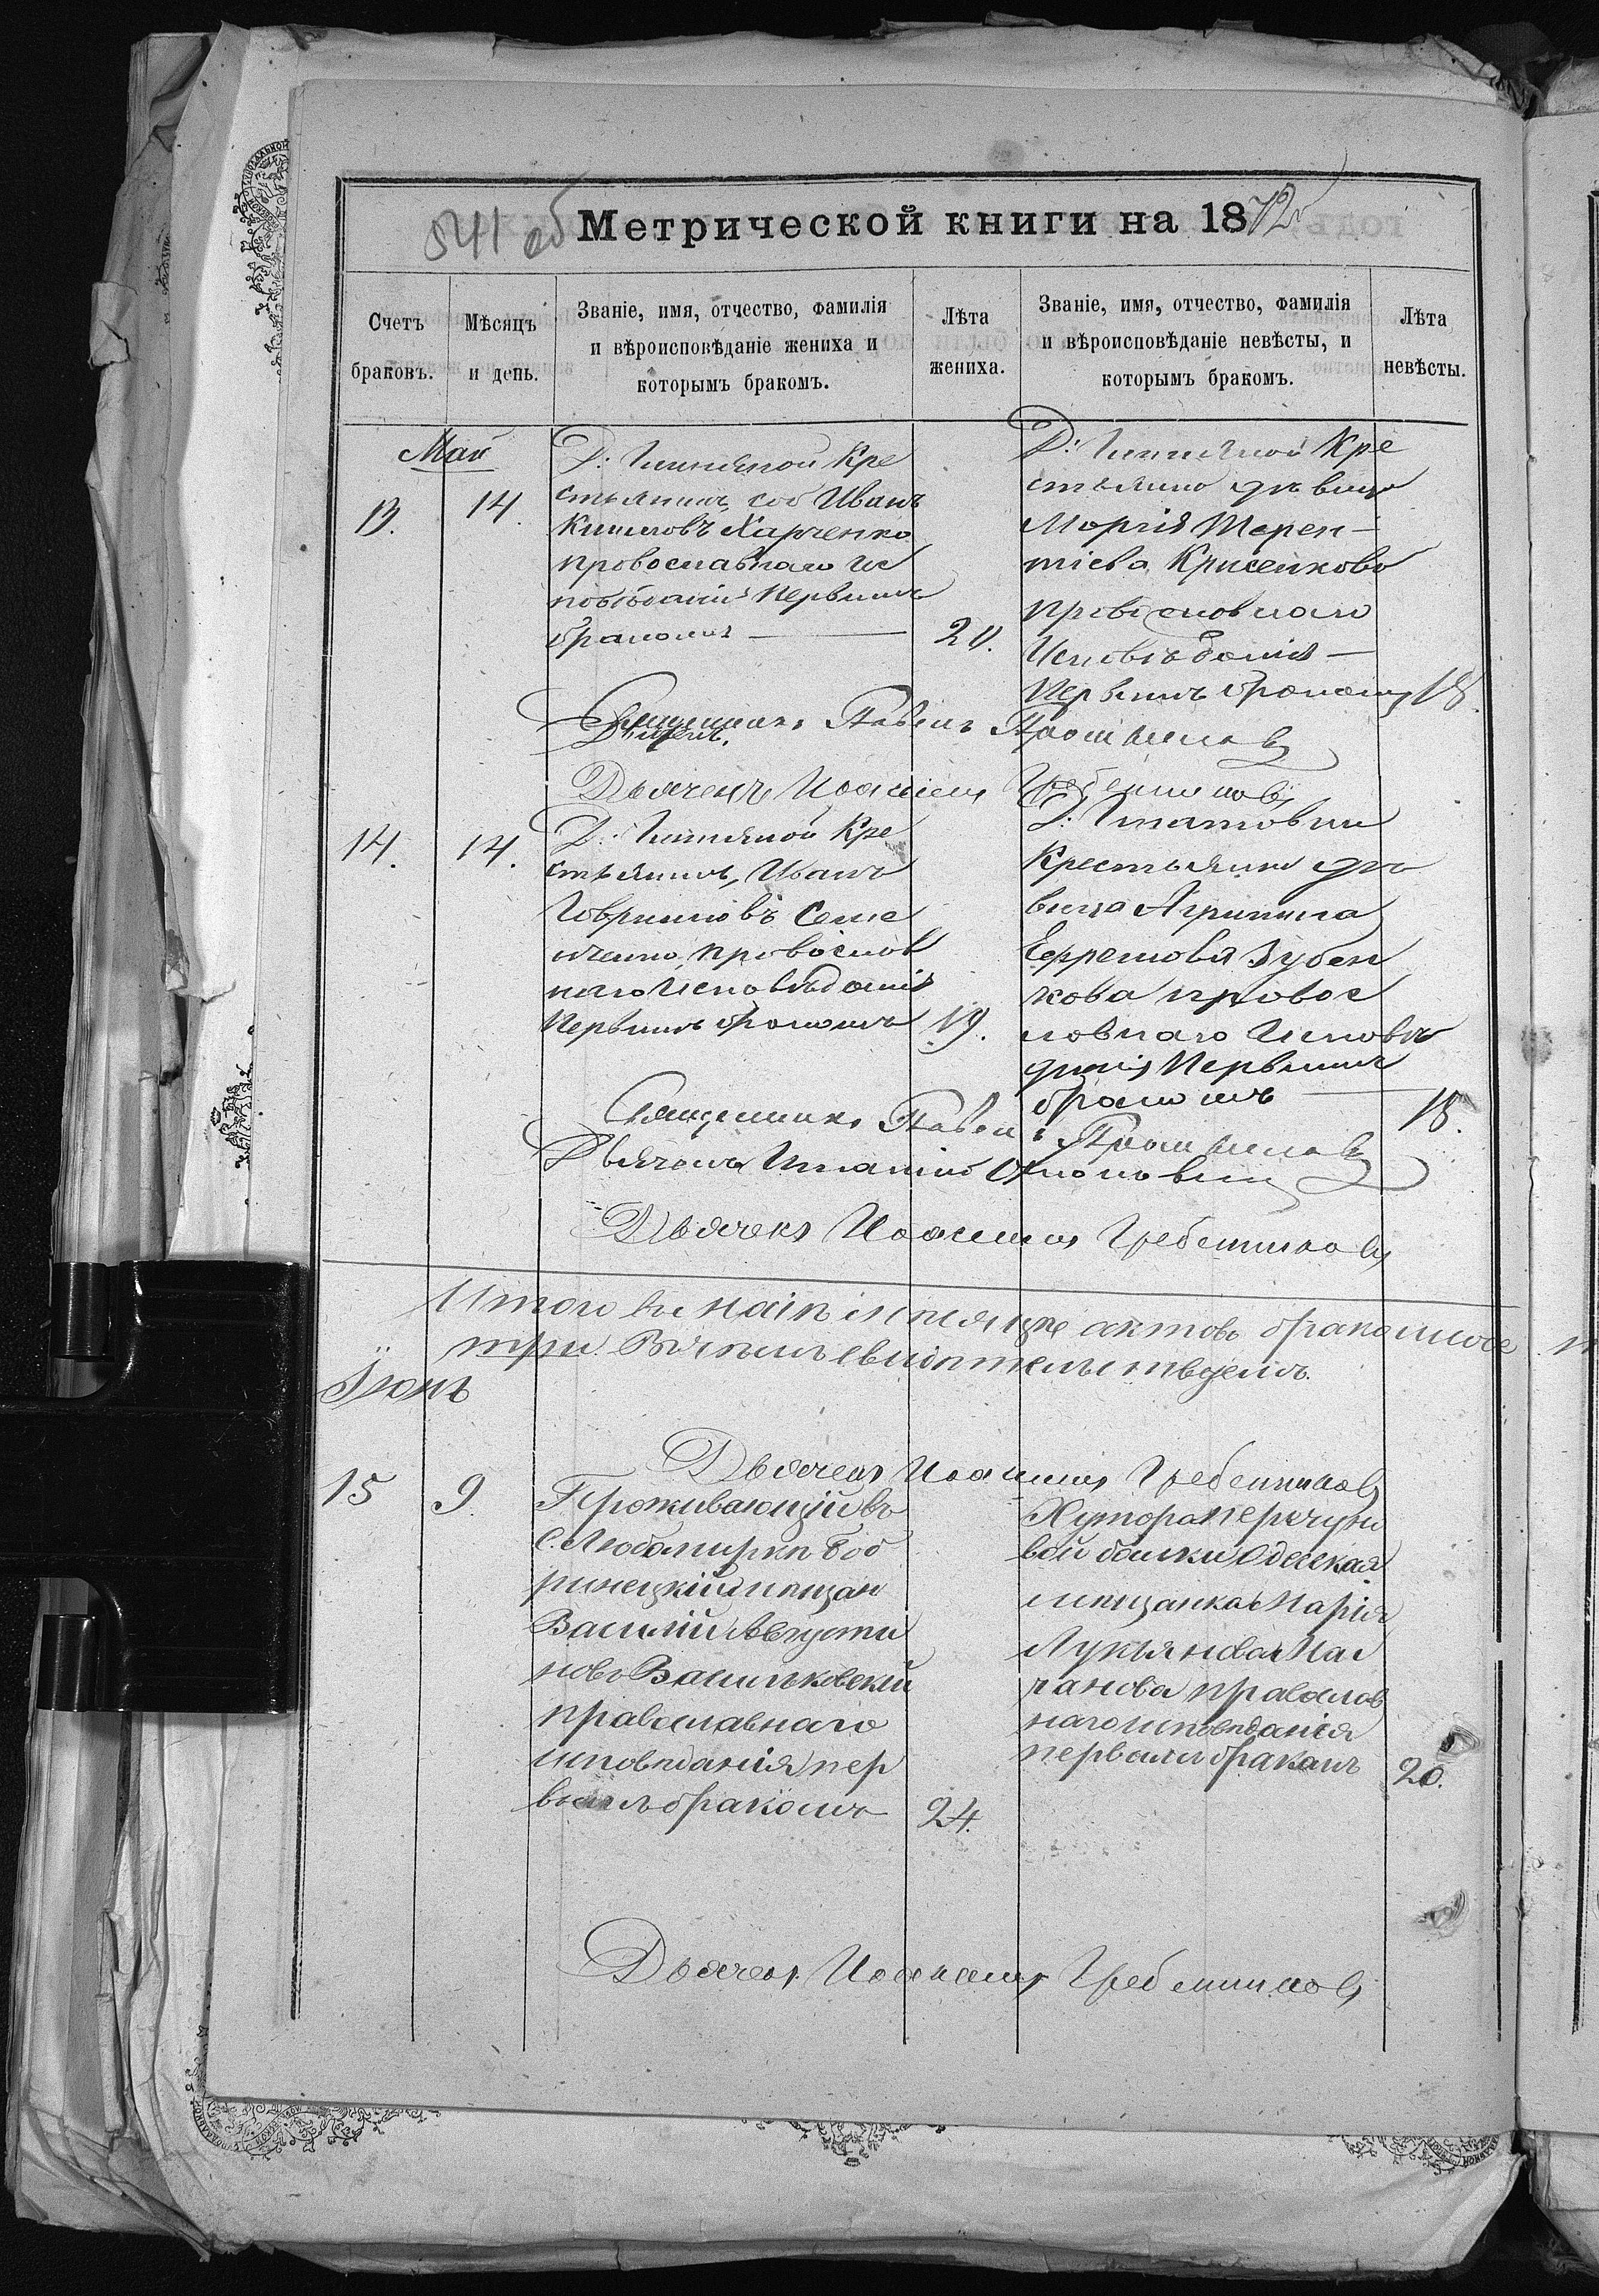 541 об Метрической книги на 1872
Счетъ браковъ.
Мѣсяцъ и день.
Званіе, имя, отчество, фамилія
и вѣроисповѣданіе жениха и
которымъ бракомъ.
Лѣта жениха.
Званіе, имя, отчество, фамилія
и вѣроисповѣданіе невѣсты, и
которымъ бракомъ.
Лѣта невѣсты.
Май
13.
14.
Д: Кре
стьянинъ Иванъ
Харченко
православнаго Ис
повѣданія Первымъ
бракомъ
20.
Д: Кре
стьянка дѣвица
Марія Терен-
тіева
православнаго
Исповѣданія
Первымъ бракомъ
18.
Священникъ Павелъ
Дьячекъ Иоакимъ Гребенниковъ
14.
14.
Д: Кре
стьянинъ, Иванъ
Гавриловъ Семе
православ
наго Исповѣданія
Первымъ бракомъ
19.
Д:
Крестьянка дѣ
вица Агрипина
Ефремова Зубен
кова правос
лавнаго Исповѣ
данія Первымъ
бракомъ
18.
Священникъ Павелъ
Дьячекъ
Дьячекъ Иоакимъ Гребенниковъ
Итого въ маѣ мѣсяцѣ актовъ
три. Въ чемъ свидѣтельствуемъ.
Іюнь
Дьячекъ Иоакимъ Гребенниковъ
15
9.
Проживающій въ
с. Любомиркѣ Боб
ринецкій мѣщан
Василій Августи
новъ Васильковскій
православнаго
исповѣданія пер
вымъ бракомъ
24.
Хутора
вой балки Одесская
мѣщанка Марія
Лукьянова Мал
чанова православ
наго исповѣданія
первымъ бракомъ
20.
Дьячекъ Иоакимъ Гребенниковъ